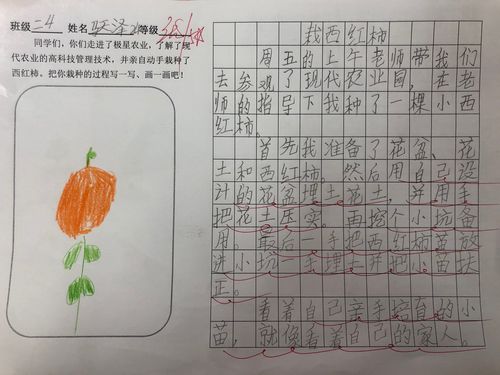 班级 二4 姓名 泽 等级
同学们，你们走进了极星农业，了解了现
代农业的高科技管理技术，并亲自动手栽种了
西红柿。把你栽种的过程写一写、画一画吧！
栽西红柿
周五的上午老师带我们
去参观了现代农业园，在老
师的指导下我种了一棵小西
红柿。
首先我准备了花盆、花
土和西红柿。然后用自己设
计的花盆埋土花土，并用手
把花土压实。再挖个小坑备
用。最后一手把西红柿苗放
进小坑一手埋土并把小苗扶
正。
看着自己亲手培育的小
苗，就像看着自己的家人。